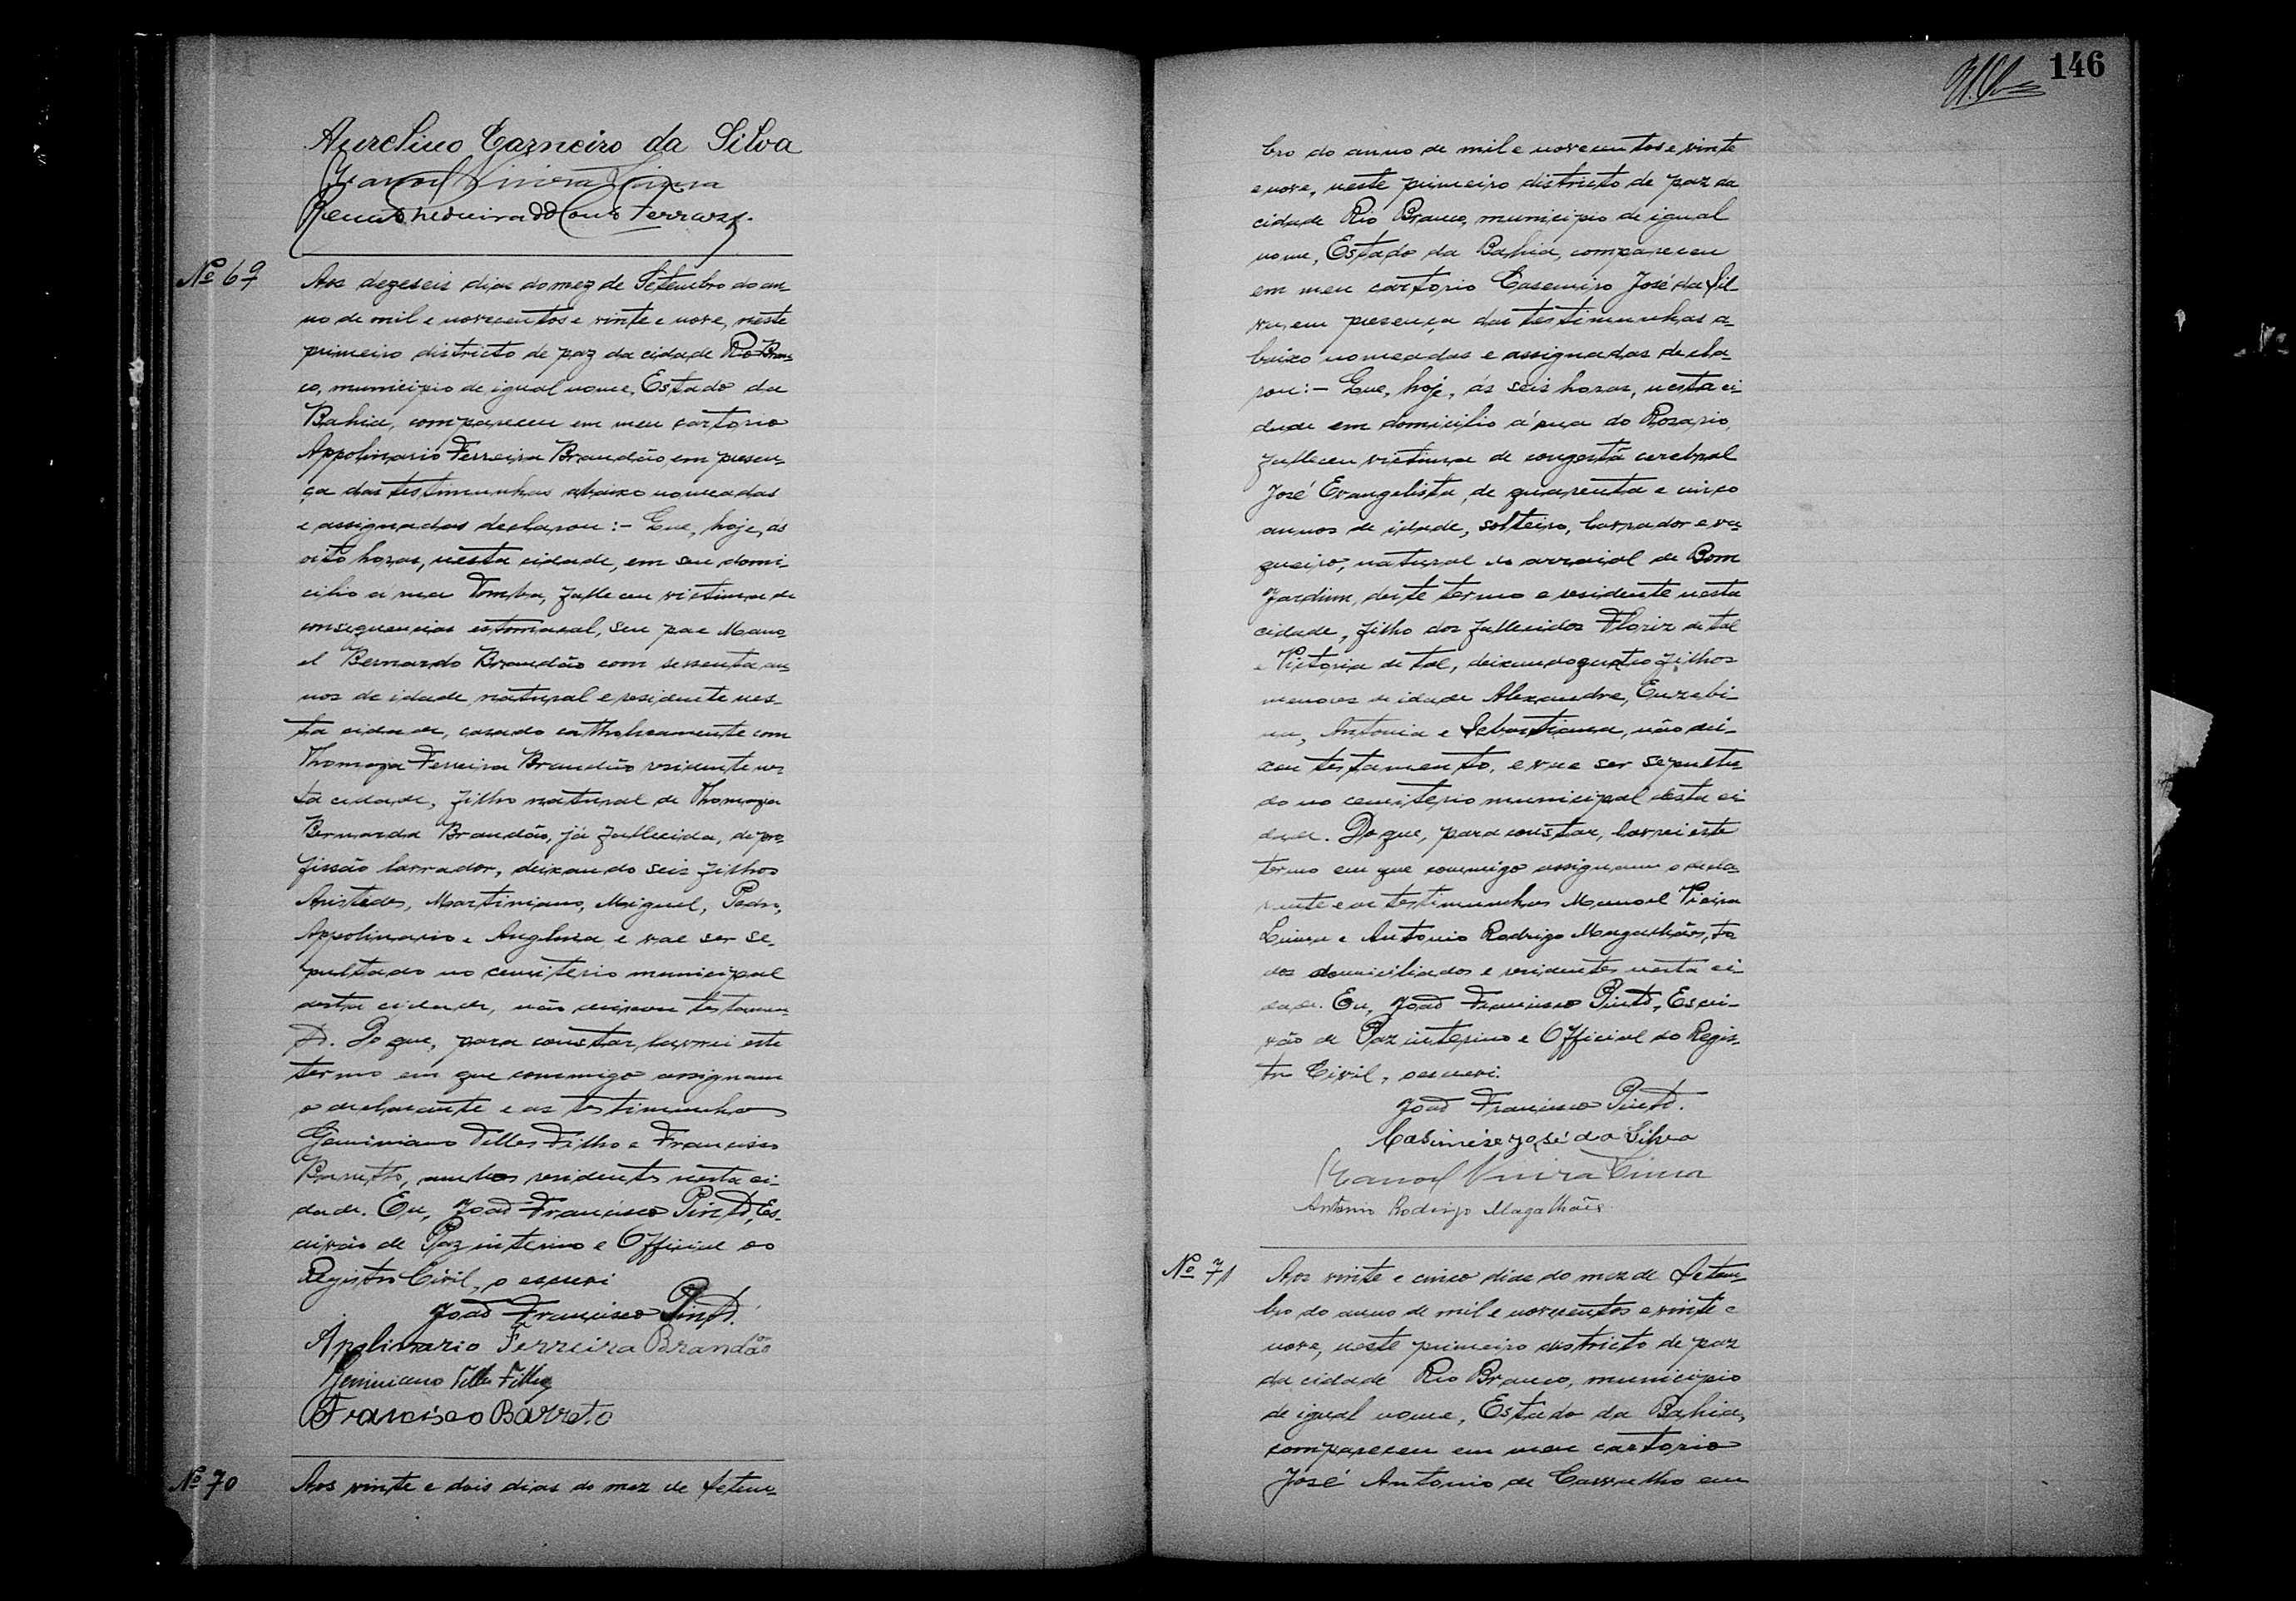 Aurelino Carneiro da Silva
Manoel Vieira Lima
Ferraz.
Nº 69
Aos dezeseis dias do mez de Setembro do an-
no de mil e novecentos e vinte e nove, neste
primeiro districto de paz da cidade Rio Bran-
co, municipio de igual nome, Estado da
Bahia, compareceu em meu cartorio
Appolinario Ferreira Brandão, em presen-
ça das testimunhas abaixo nomeadas
e assignadas declarou:- Que, hoje, ás
oito horas, nésta cidade, em seu domi-
cilio á rua Tomba, falleceu victima de
consequencias estomacal, seu pae Mano-
el Bernardo Brandão com sessenta an-
nos de idade natural e residente nes-
ta cidade, casado catholicamente com
Thomazia Ferreira Brandão residente nes-
ta cidade, filho natural de Thomazia
Bernarda Brandão, já fallecida, de pro-
fissão lavrador, deixando seis filhos
Aristides, Martiniano, Miguel, Pedro,
Appolinario e Anglina e vae ser se-
pultado no cemiterio municipal
desta cidade, não deixou testamen-
to. Do que, para constar lavrei este
termo em que commigo assignam
o declarante e as testimunhas
Geminiano Telles Filho e Francisco
Barretto, ambos residentes nesta ci-
dade. Eu, João Francisco Pinto, Es-
crivão de Paz interino e Official do
Registro Civil, o escrevi
João Francisco Pinto.
Apolinario Ferreira Brandão
Geminiano Telles Filho
Francisco Barreto
Nº 70
Aos vinte e dois dias do mez de Setem-
146
bro do anno de mil e novecentos e vinte
e nove, neste primeiro districto de paz da
cidade Rio Branco, municipio de igual
nome, Estado da Bahia, compareceu
em meu cartorio Casemiro José da Sil-
va, em presença das testimunhas a-
baixo nomeadas e assignadas decla-
rou:- Que, hoje, ás seis horas, nesta ci-
dade em domicilio á rua do Rosario,
falleceu victima de congestã cerebral
José Evangelista, de quarenta e cinco
annos de idade, solteiro, lavrador e va-
queiro, natural do arraial de Bom
Jardim, deste termo e residente nesta
cidade, filho dos fallecidos Floriz de tal
e Victoria de tal, deixando quatro filhos
menores de idade Alexandre, Euzebi-
na, Antonia e Sebastiana, não dei-
xou testamento, e vae ser sepulta-
do no cemiterio municipal desta ci-
dade. Do que, para constar, lavrei este
termo em que commigo assignam o decla-
rante e as testimunhas Manoel Vieira
Lima e Antonio Rodrigo Magalhães, to-
dos domiciliados e residentes nesta ci-
dade. Eu, João Francisco Pinto, Escri-
vão de Paz interino e Official do Regis-
tro Civil, o escrevi.
João Francisco Pinto.
Casimiro José da Silva
Manoel Vieira Lima
Antonio Rodrigo Magalhães
Nº 71
Aos vinte e cinco dias do mez de Setem-
bro do anno de mil e novecentos e vinte e
nove, neste primeiro districto de paz
da cidade Rio Branco, municipio
de igual nome, Estado da Bahia,
compareceu em meu cartorio
José Antonio de Carvalho em